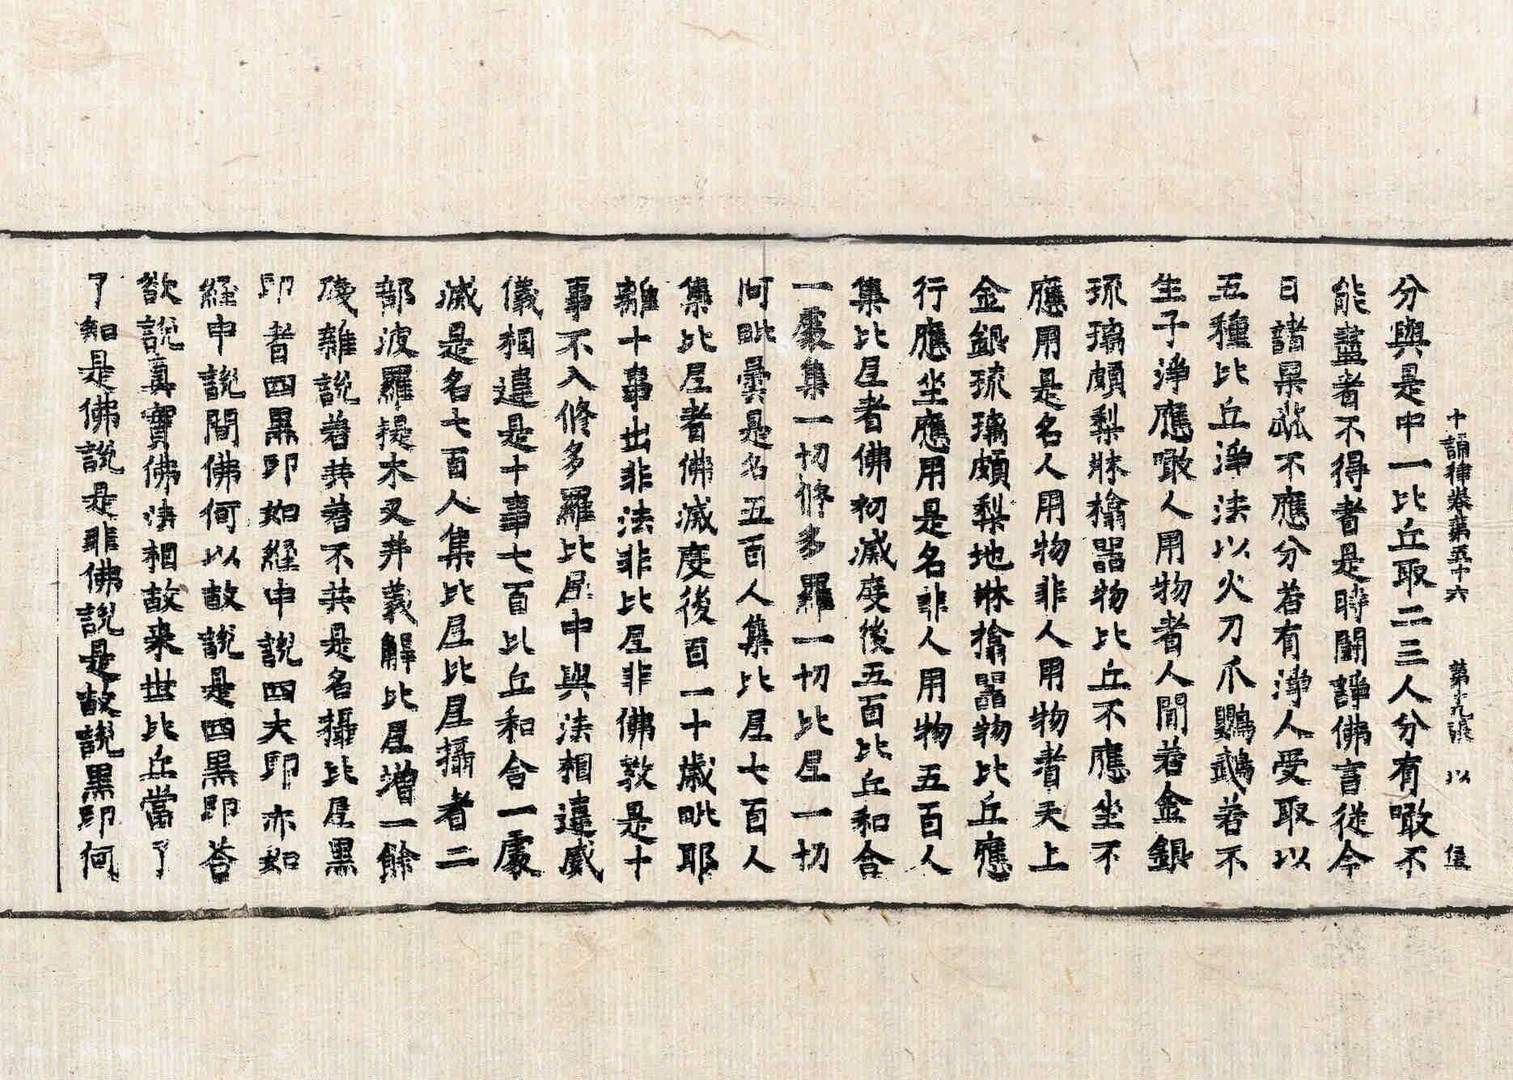 十誦律卷第五十六 第十九張 以 
分與是中一比丘取二三人分有噉不
能盡者不得者是時鬪諍佛言從今
日諸果菜不應分若有淨人受取以
五種比丘淨法以火刀爪鸚鵡若不
生子淨應噉人用物者人間若金銀
琉璃頗梨牀榻器物比丘不應坐不
應用是名人用物非人用物者天上
金銀琉璃頗梨地牀榻器物比丘應
行應坐應用是名非人用物五百人
集比尼者佛初滅度後五百比丘和合
一處集一切修多羅一切比尼一切
阿毗曇是名五百人集比尼七百人
集比尼者佛滅度後百一十歲毗耶
離十事出非法非比尼非佛教是十
事不入修多羅比尼中與法相違威
儀相違是十事七百比丘和合一處
滅是名七百人集比尼比尼攝者二
部波羅提木叉并義解比尼增一餘
殘雜說若共若不共是名攝比尼黑
印者四黑印如經中說四大印亦如
經中說問佛何以故說是四黑印答
欲說真實佛法相故來世比丘當了
了知是佛說是非佛說是故說黑印何